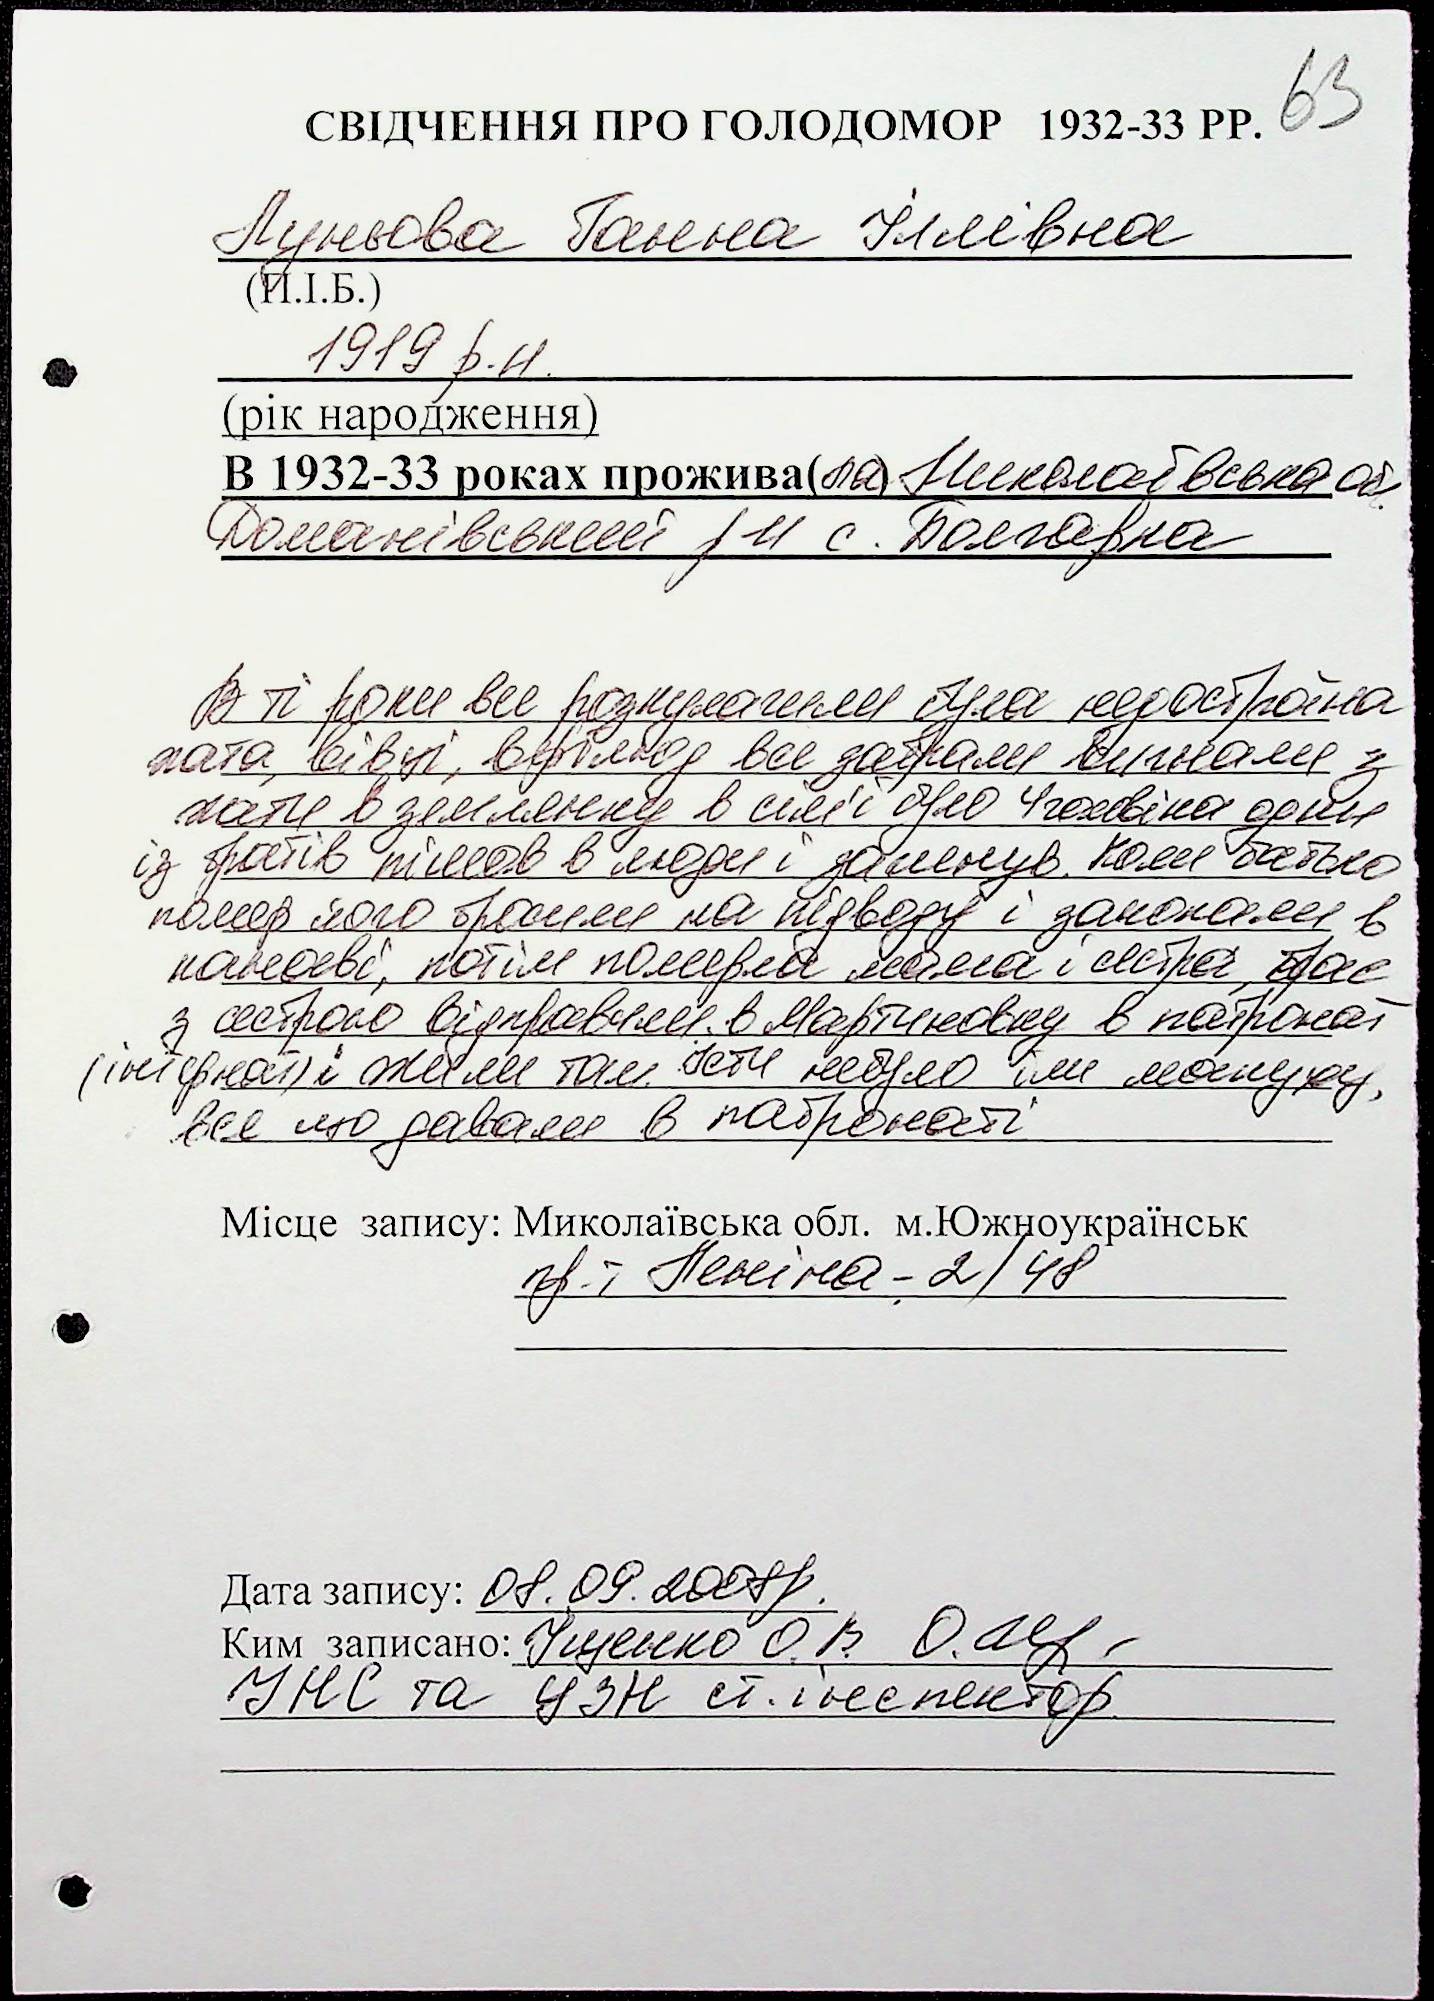 63
СВІДЧЕННЯ ПРО ГОЛОДОМОР 1932-33 РР.
Луньова Ганна Іллівна
(П.І.Б.)
1919 р.н.
(рік народження)
В 1932-33 роках прожива(ла) Миколаївська обл.
Доманівський р н с. Болгарка
В ті роки все розкулачили була недостроїна
хата, вівці, все забрали вигнали з
хати в землянку в сім'ї було 4 чоловіка один
із братів пішов в люди і загинув. Коли батько
помер його бросили на підводу і закопали в
канаві, потім померла мама і сестра, брас
з сестрою відправили в Мартиновку в патронат
(інтернат) і жили там. Їсти небуло їли макуху,
все що давали в патронаті
Місце запису: Миколаївська обл. м.Южноукраїнськ
пр-т Леніна - 2/48
Дата запису: 08.09.2008р.
Ким записано: Іщенко О.В.
УПС та ЦЗН ст. інспектор